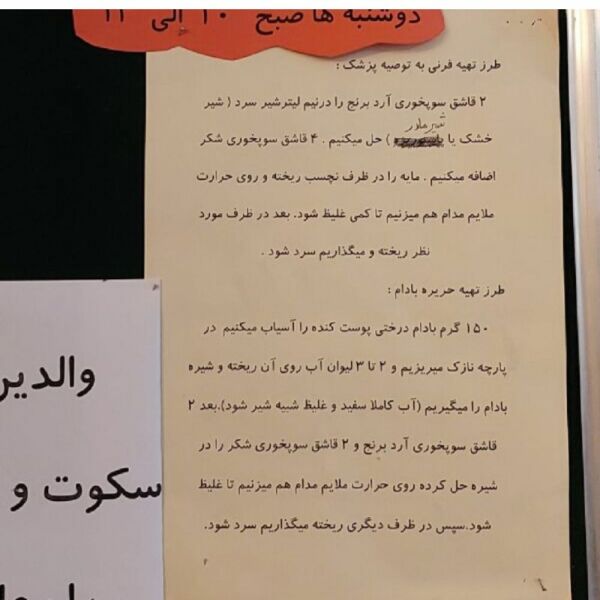 دوشنبه ها صبح ۱۰ الی ۱۲
طرز تهیه فرنی به توصیه پزشک :
۲ قاشق سوپخوری آرد برنج را درنیم لیترشیر سرد ( شیر
شیر مادر
خشک یا ) حل میکنیم . ۴ قاشق سوپخوری شکر
اضافه میکنیم . مایه را در ظرف نچسب ریخته و روی حرارت
ملایم مدام هم میزنیم تا کمی غلیظ شود. بعد در ظرف مورد
نظر ریخته و میگذاریم سرد شود .
طرز تهیه حریره بادام :
۱۵۰ گرم بادام درختی پوست کنده را آسیاب میکنیم در
پارچه نازک میریزیم و ۲ تا ۳ لیوان آب روی آن ریخته و شیره
بادام را میگیریم (آب کاملا سفید و غلیظ شبیه شیر شود).بعد ۲
قاشق سوپخوری آرد برنج و ۲ قاشق سوپخوری شکر را در
شیره حل کرده روی حرارت ملایم مدام هم میزنیم تا غلیظ
شود.سپس در ظرف دیگری ریخته میگذاریم سرد شود.
والدین
سکوت و